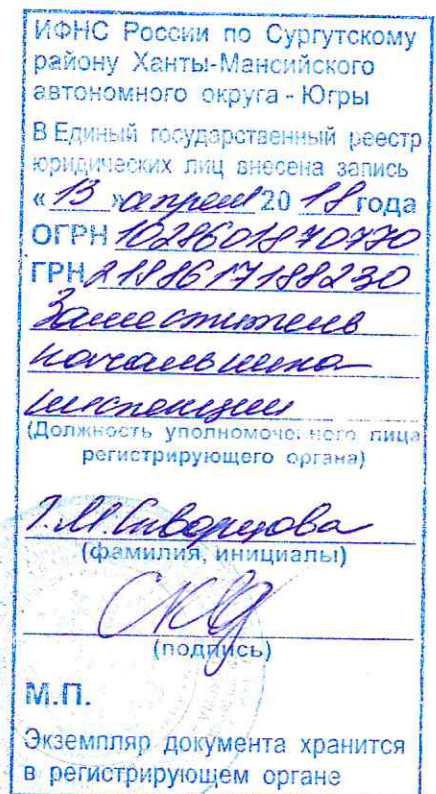 ИФНС России по Сургутскому
району Ханты-Мансийского
автономного округа - Югры
В Единый государственный реестр
юридических лиц внесена запись
« 13 » апреля 20 18 года
ОГРН 1028601870770
ГРН 2188617188230
Заместитель
начальника
инспекции
(Должность уполномоченного лица
регистрирующего органа)
Т.М. Скворцова
(фамилия, инициалы)
(подпись)
М.П.
Экземпляр документа хранится
в регистрирующем органе